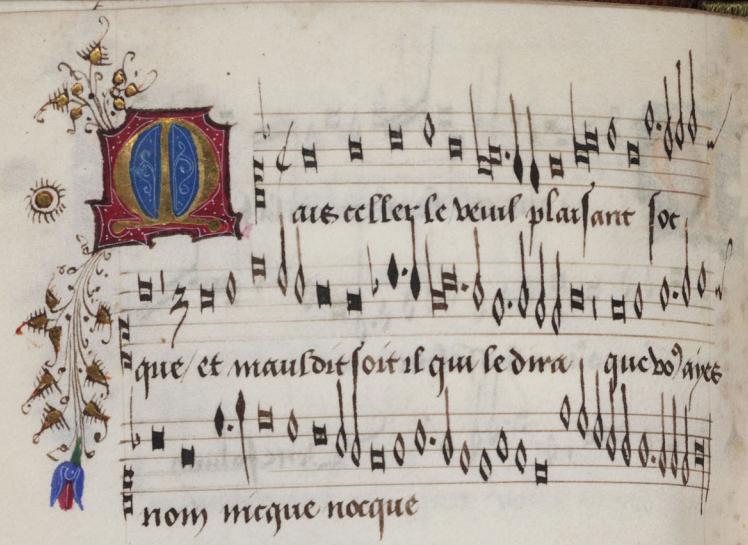 Mais celler le veuil plaisant soc
que et mauldit soit il qui le dira que voꝰ ayes
nom nicque nocque